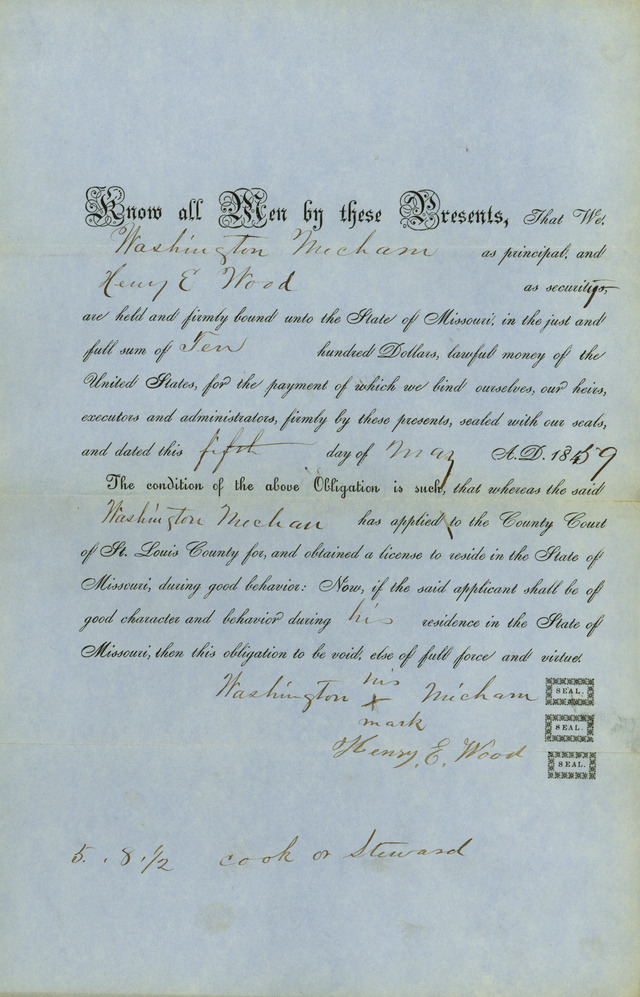 Know all Men by these Presents, That We,
Washington Micham as principal, and
Henry E Wood as security,
are held and firmly bound unto the State of Missouri, in the just and
full sum of Ten hundred Dollars, lawful money of the
United States, for the payment of which we bind ourselves, our heirs,
executors and administrators, firmly by these presents, sealed with our seals,
and dated this fifth day of May A.D. 1859
The condition of the above Obligation is such, that whereas the said
Washington Micham has applied to the County Court
of St. Louis County for, and obtained a license to reside in the State of
Missouri, during good behavior: Now, if the said applicant shall be of
good character and behavior during his residence in the State of
Missouri, then this obligation to be void, else of full force and virtue.
Washington his Micham SEAL.
x
mark SEAL.
Henry, E. Wood SEAL.
5. . 8 1/2 cook or Steward